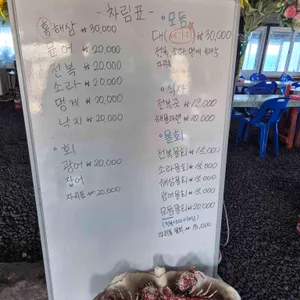 - 차림표 -
홍해삼 ₩30,000
문어 ₩20,000
전복 ₩20,000
소라 ₩20,000
멍게 ₩20,000
낙지 ₩20,000
◦회
광어 ₩20,000
장어
₩20,000
◦모듬
대 ₩30,000
전복 소라 멍게 해삼
◦식사
전복죽 ₩12,000
해물라면 ₩10,000
◦물회
전복물회 ₩15,000
소라물회 ₩15,000
해삼물회 ₩15,000
광어물회 ₩15,000
모듬물회 ₩20,000
물회